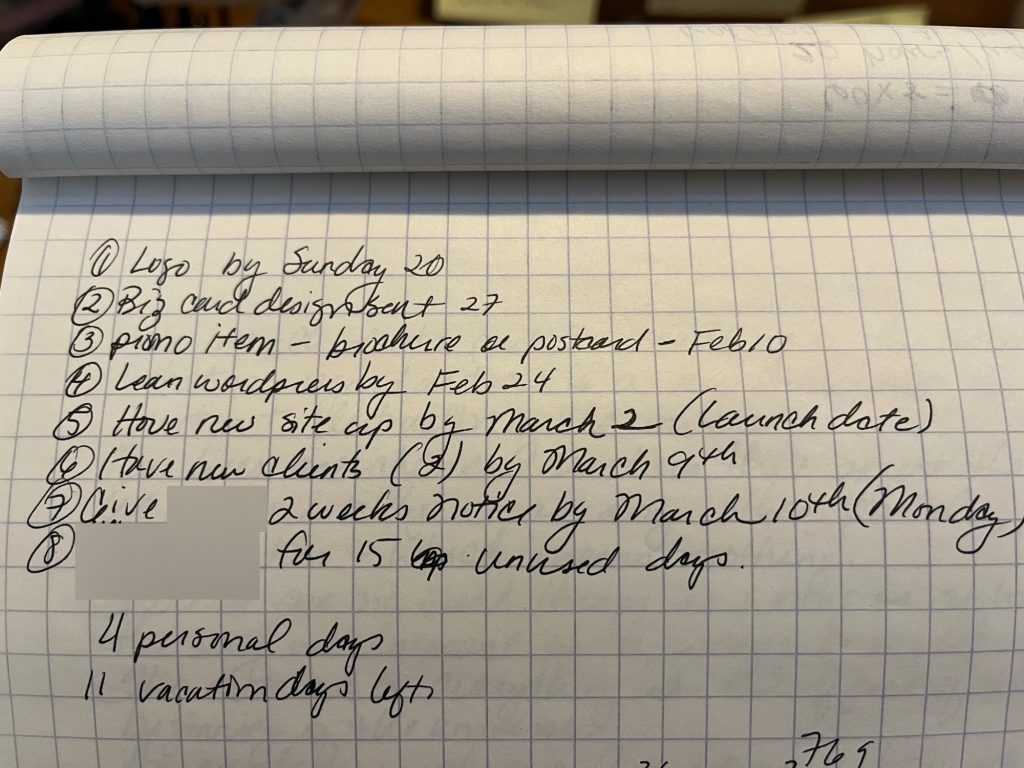 ① Logo by Sunday 20
② Biz card design sent 27
③ promo item – brochure or postcard – Feb 10
④ Learn wordpress by Feb 24
⑤ Have new site up by March 2 (Launch date)
⑥ Have new clients (2) by March 9th
⑦ Give 2 weeks notice by March 10th (Monday)
⑧ for 15 unused days.
4 personal days
11 vacation days left
769